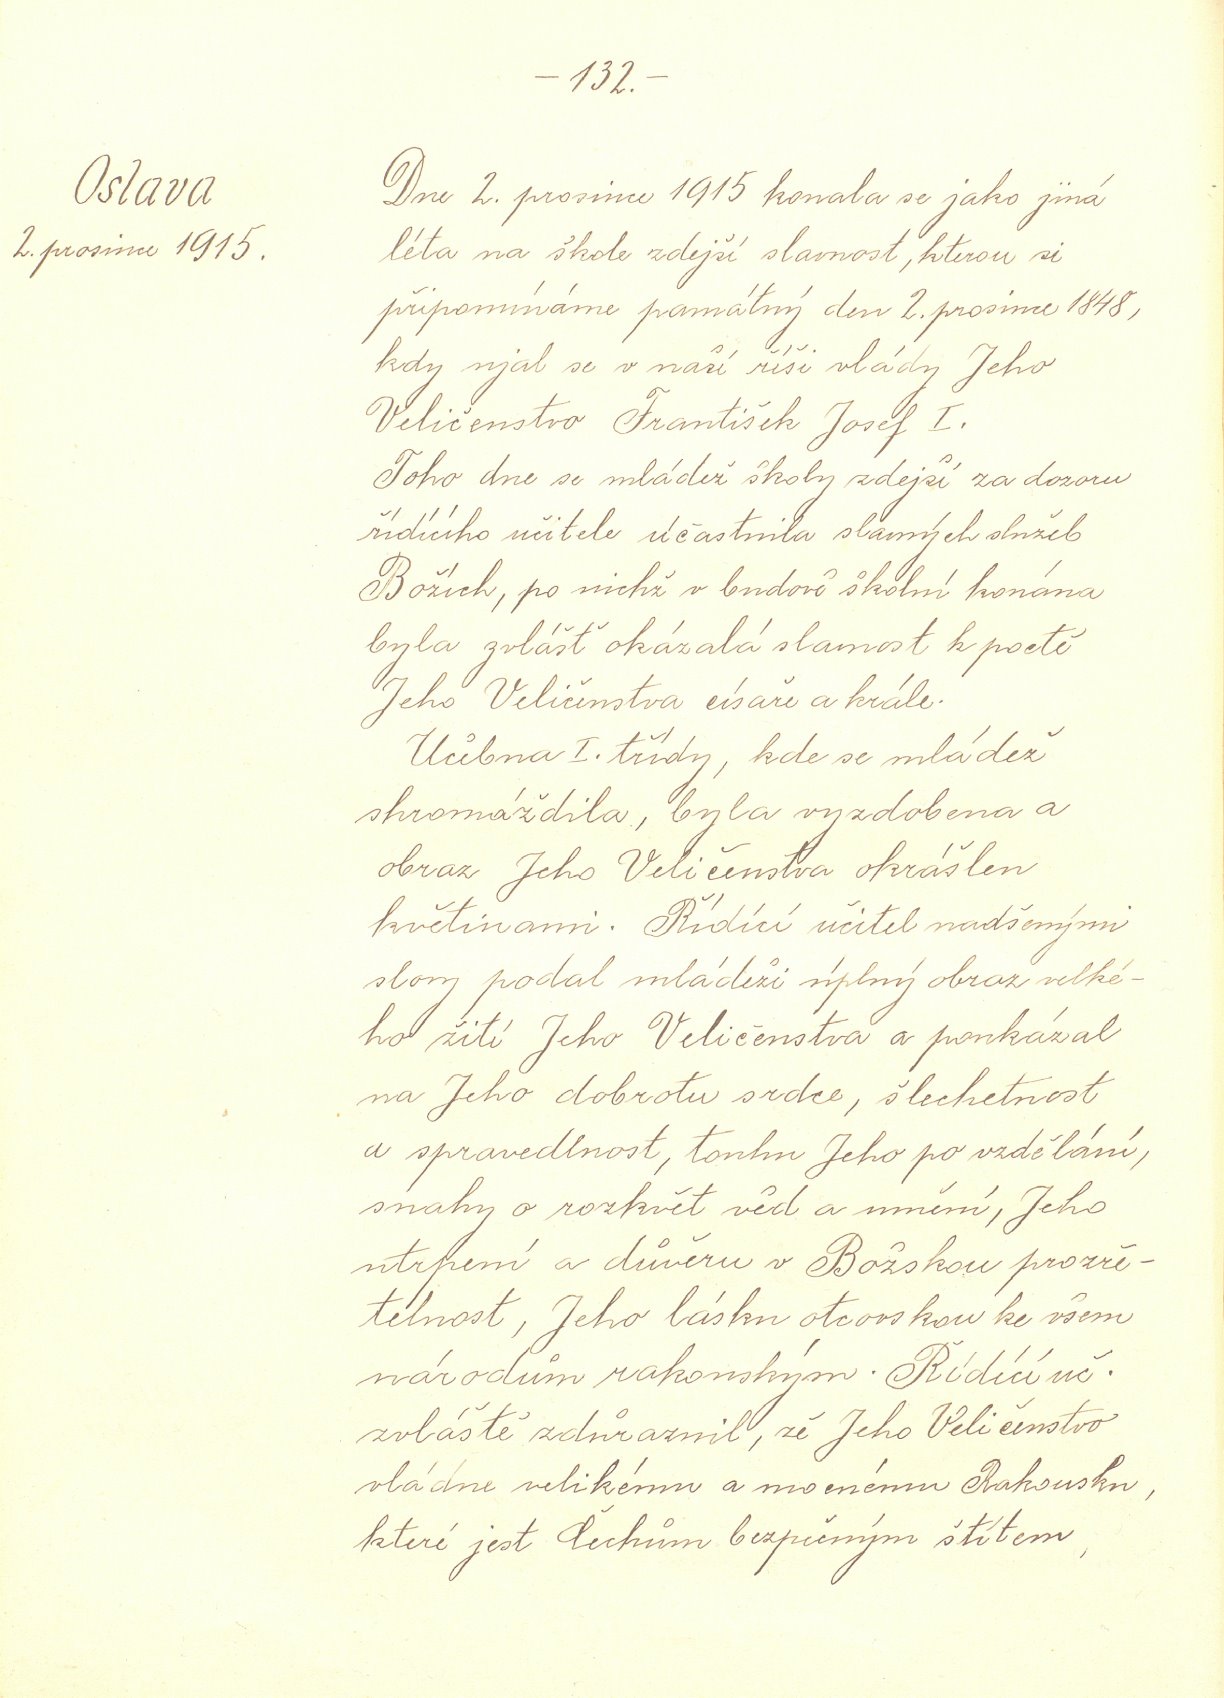 – 132. –
Oslava
2. prosince 1915.
Dne 2. prosince 1915 konala se jako jiná
léta na škole zdejší slavnost, kterou si
připomínáme památný den 2. prosince 1848,
kdy ujal se v naší říši vlády Jeho
Veličenstvo František Josef I.
Toho dne se mládež školy zdejší za dozoru
řídícího učitele účastnila slavných služeb
Božích, po nichž v budově školní konána
byla zvlášť okázalá slavnost k poctě
Jeho Veličenstva císaře a krále.
Učebna I. třídy, kde se mládež
shromáždila, byla vyzdobena a
obraz Jeho Veličenstva okrášlen
květinami. Řídící učitel nadšenými
slovy podal mládeži úplný obraz velké-
ho žití Jeho Veličenstva a poukázal
na Jeho dobrotu srdce, šlechetnost
a spravedlnost, touhu Jeho po vzdělání,
snahy o rozkvět věd a umění, Jeho
utrpení a důvěru v Božskou prozře-
telnost, Jeho lásku otcovskou ke všem
národům rakouským. Řídící uč.
zvláště zdůraznil, že Jeho Veličenstvo
vládne velikému a mocnému Rakousku,
které jest Čechům bezpečným štítem,